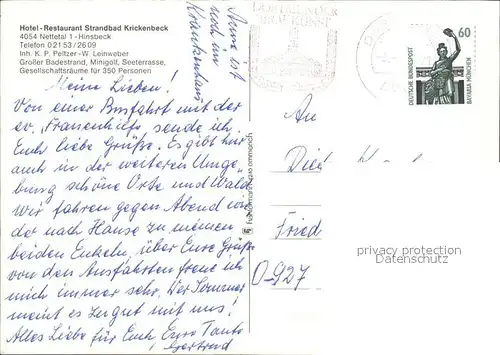 Hotel-Restaurant Strandbad Krickenbeck
4054 Nettetal 1-Hinsbeck
Telefon 02153/2609
Inh. K. P. Peltzer-W. Leinweber
Großer Badestrand, Minigolf, Seeterrasse,
Gesellschaftsräume für 350 Personen
Anne ist
noch im
Krankenhaus
Meine Lieben!
Von einer Busfahrt mit der
ev. Frauenhilfe sende ich
Euch liebe Grüße. Es gibt hier
auch in der weiteren Umge
bung schöne Orte und Wald
Wir fahren gegen Abend wie
der nach Hause zu meinen
beiden Enkeln, über Eure Grüße
von den Ausfahrten freue ich
mich immer sehr. Der Sommer
meint es zu gut mit uns!
Alles Liebe für Euch Eure Tante
Gertrud
DORTMUNDER
BRAUKUNST
60
DEUTSCHE BUNDESPOST
BAVARIA MÜNCHEN
An
Fried
O-927
privacy protection
Datenschutz